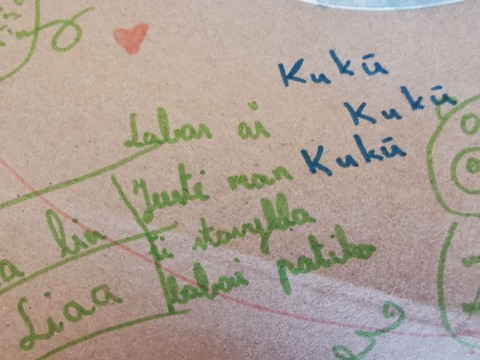 Kukū
Kukū
Kukū
Labas aš
Justė man
ši stovykla
labai patiko
lin
Liaa